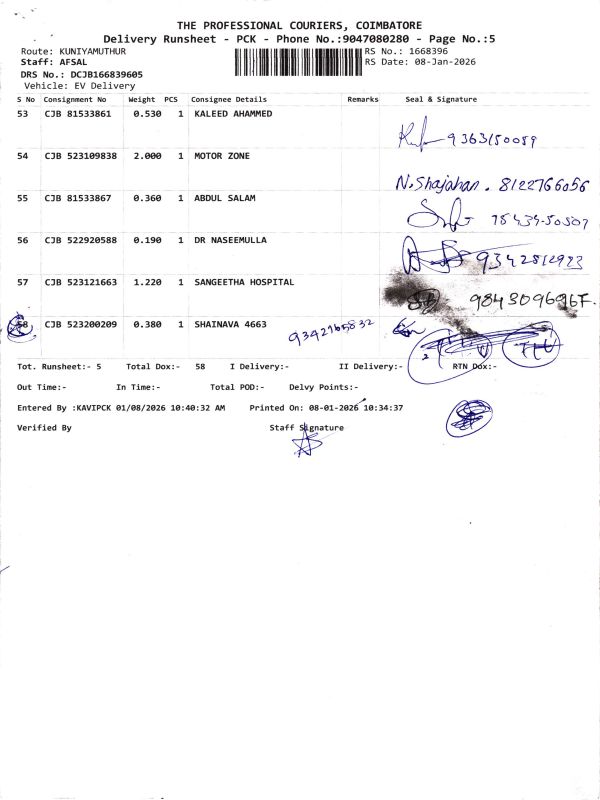 THE PROFESSIONAL COURIERS, COIMBATORE
Delivery Runsheet - PCK - Phone No.:9047080280 - Page No.:5
Route: KUNIYAMUTHUR
RS No.: 1668396
Staff: AFSAL
RS Date: 08-Jan-2026
DRS No.: DCJB166839605
Vehicle: EV Delivery
S No Consignment No Weight PCS Consignee Details Remarks Seal & Signature
53 CJB 81533861 0.530 1 KALEED AHAMMED
9363150059
54 CJB 523109838 2.000 1 MOTOR ZONE
N.Shajahan. 8122766056
55 CJB 81533867 0.360 1 ABDUL SALAM
56 CJB 522920588 0.190 1 DR NASEEMULLA
57 CJB 523121663 1.220 1 SANGEETHA HOSPITAL
58 CJB 523200209 0.380 1 SHAINAVA 4663 9342165832
Tot. Runsheet:- 5 Total Dox:- 58 I Delivery:- II Delivery:- RTN Dox:-
Out Time:- In Time:- Total POD:- Delvy Points:-
Entered By :KAVIPCK 01/08/2026 10:40:32 AM Printed On: 08-01-2026 10:34:37
Verified By Staff Signature